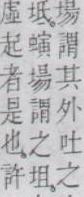 場謂其外吐
坻。螾場謂之坥。
虛起者是也。許